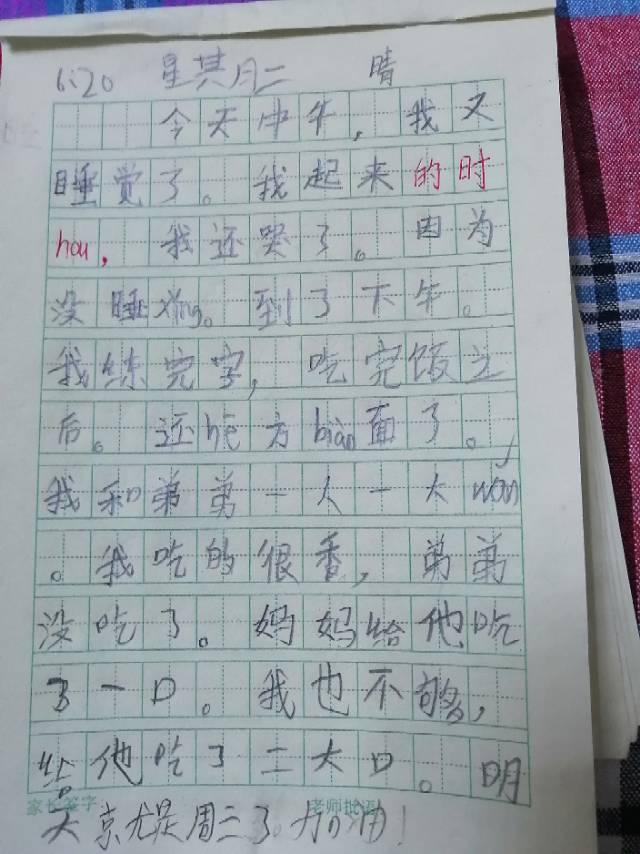 6:20 星其月二 晴
今天中午,我又
睡觉了。我起来的时
hou,我还哭了。因为
没睡xǐng。到了下午。
我练完字,吃完饭之
后。还hē方biàn面了。
我和弟弟一人一大wǎn
。我吃的很香,弟弟
没吃了。妈妈给他吃
了一口。我也不够,
给他吃了二大口。明
家长签字 老师批语
天京尤是周三了。加油!